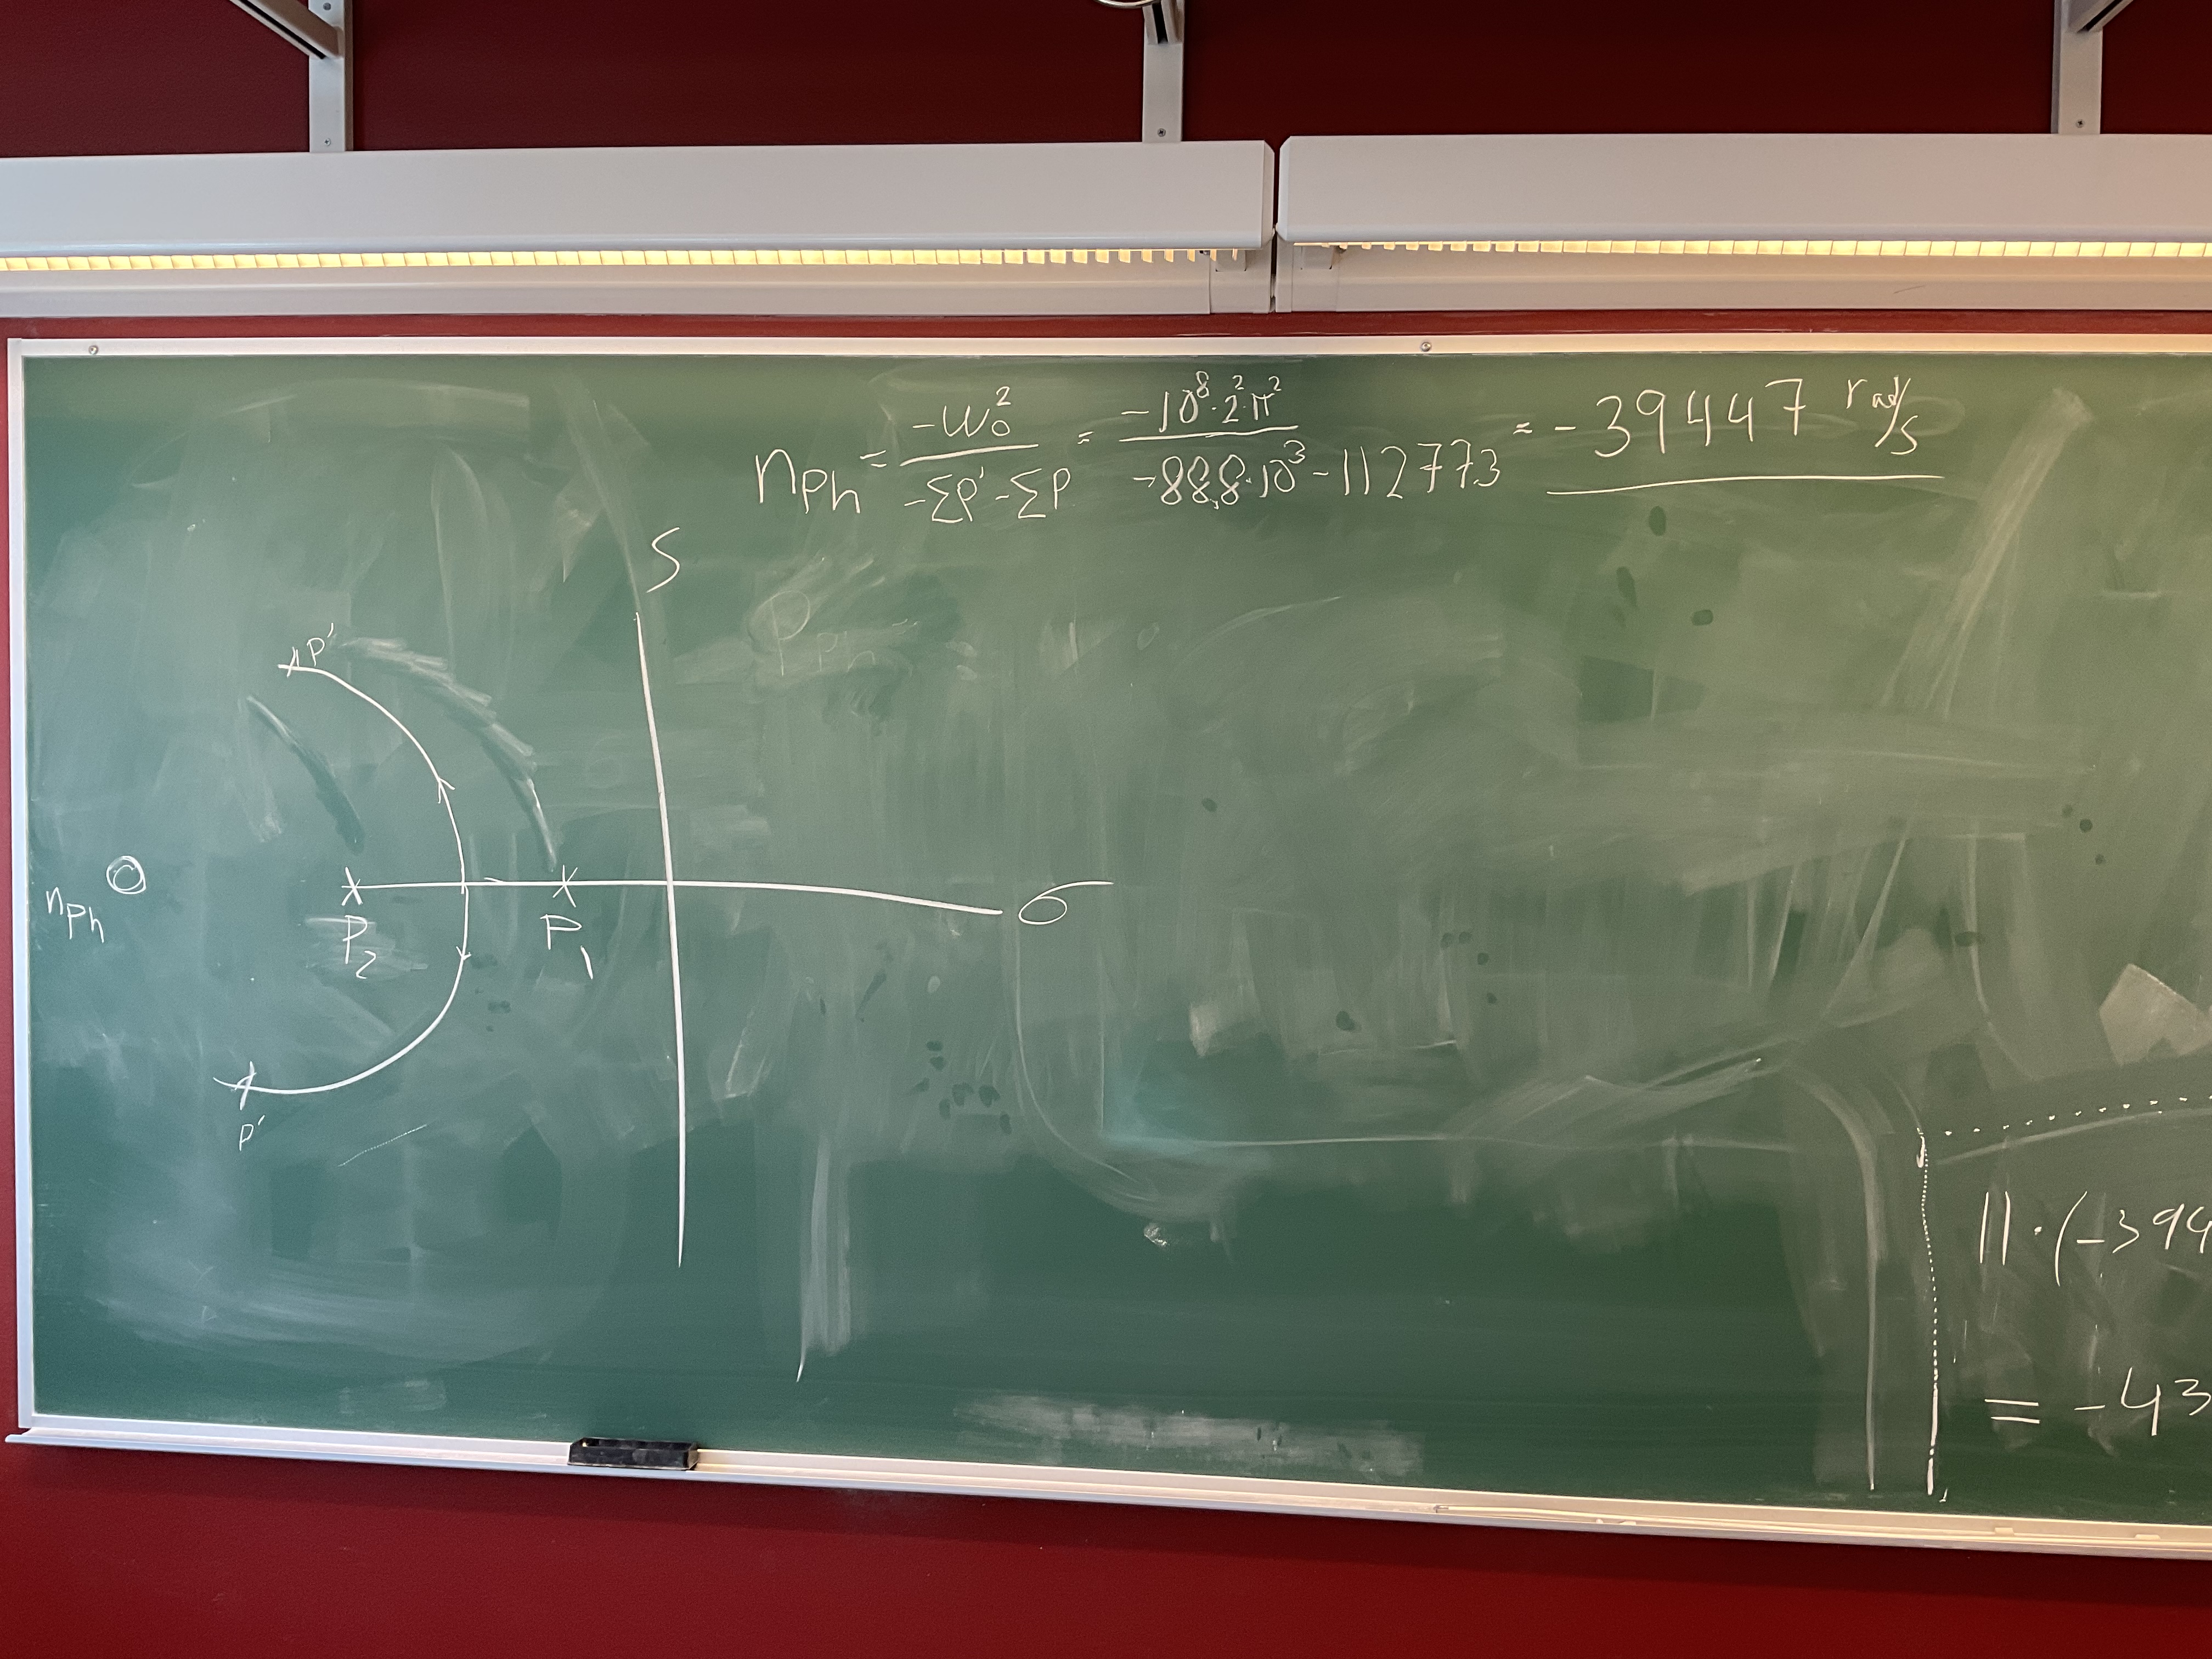 nph = -ω₀² / -Σp' - Σp = -10⁸·2²·π² / -88,8·10³ - 112773 = -39447 rad/s
S
p'
nph
P₂
P₁
σ
p'
11·(-394
= -43